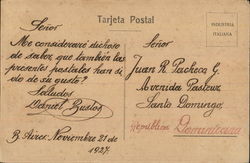 Tarjeta Postal
INDUSTRIA
ITALIANA
Señor
Me consideraré dichoso
de saber, que también las
presentes postales han si
do de su gusto?
Saludos
Daniel Bustos
B. Aires. Noviembre 21 de
1927.
Señor
Juan R. Pacheco G.
Avenida Pasteur
Santo Domingo.
Republica Dominicana